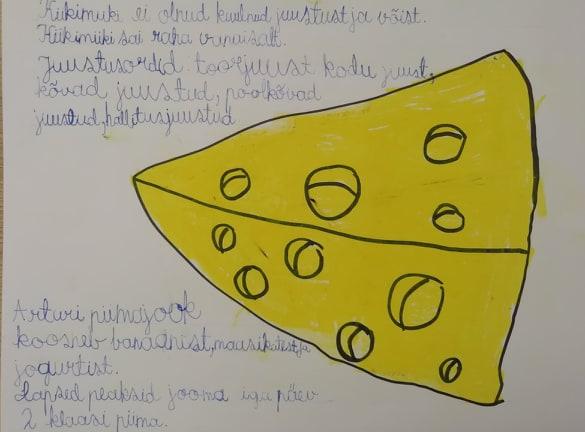 Kikimuki ei olnud kuulnud juustust ja võist.
Kiikimüki sai raha vanaisalt.
Juustusordid toorjuust kodu juust,
kõvad juustud, poolkõvad
juustud, hallitusjuustud
Arturi piimajook
koosneb banaanist, maasikatest ja
jogurtist.
Lapsed peaksid jooma iga päev
2 klaasi piima.